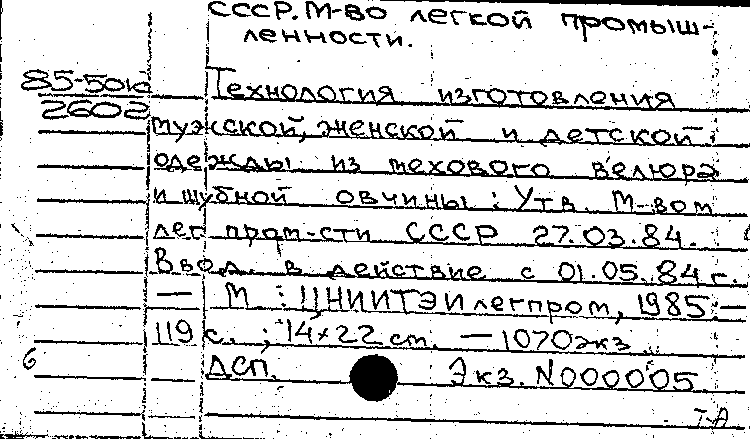 СССР. М-во легкой промыш-
ленности.
85-5010
2602
Технология изготовления
мужской, женской и детской
одежды из мехового велюра
и шубной овчины : Утв. М-вом
лег пром-сти СССР 27.03.84.
Ввод. в действие с 01.05.84 г.
— М : ЦНИИТЭИлегпром, 1985. —
119 с. ; 14×22 см. — 1070 экз
6
ДСП. Экз. N000005
Т-А